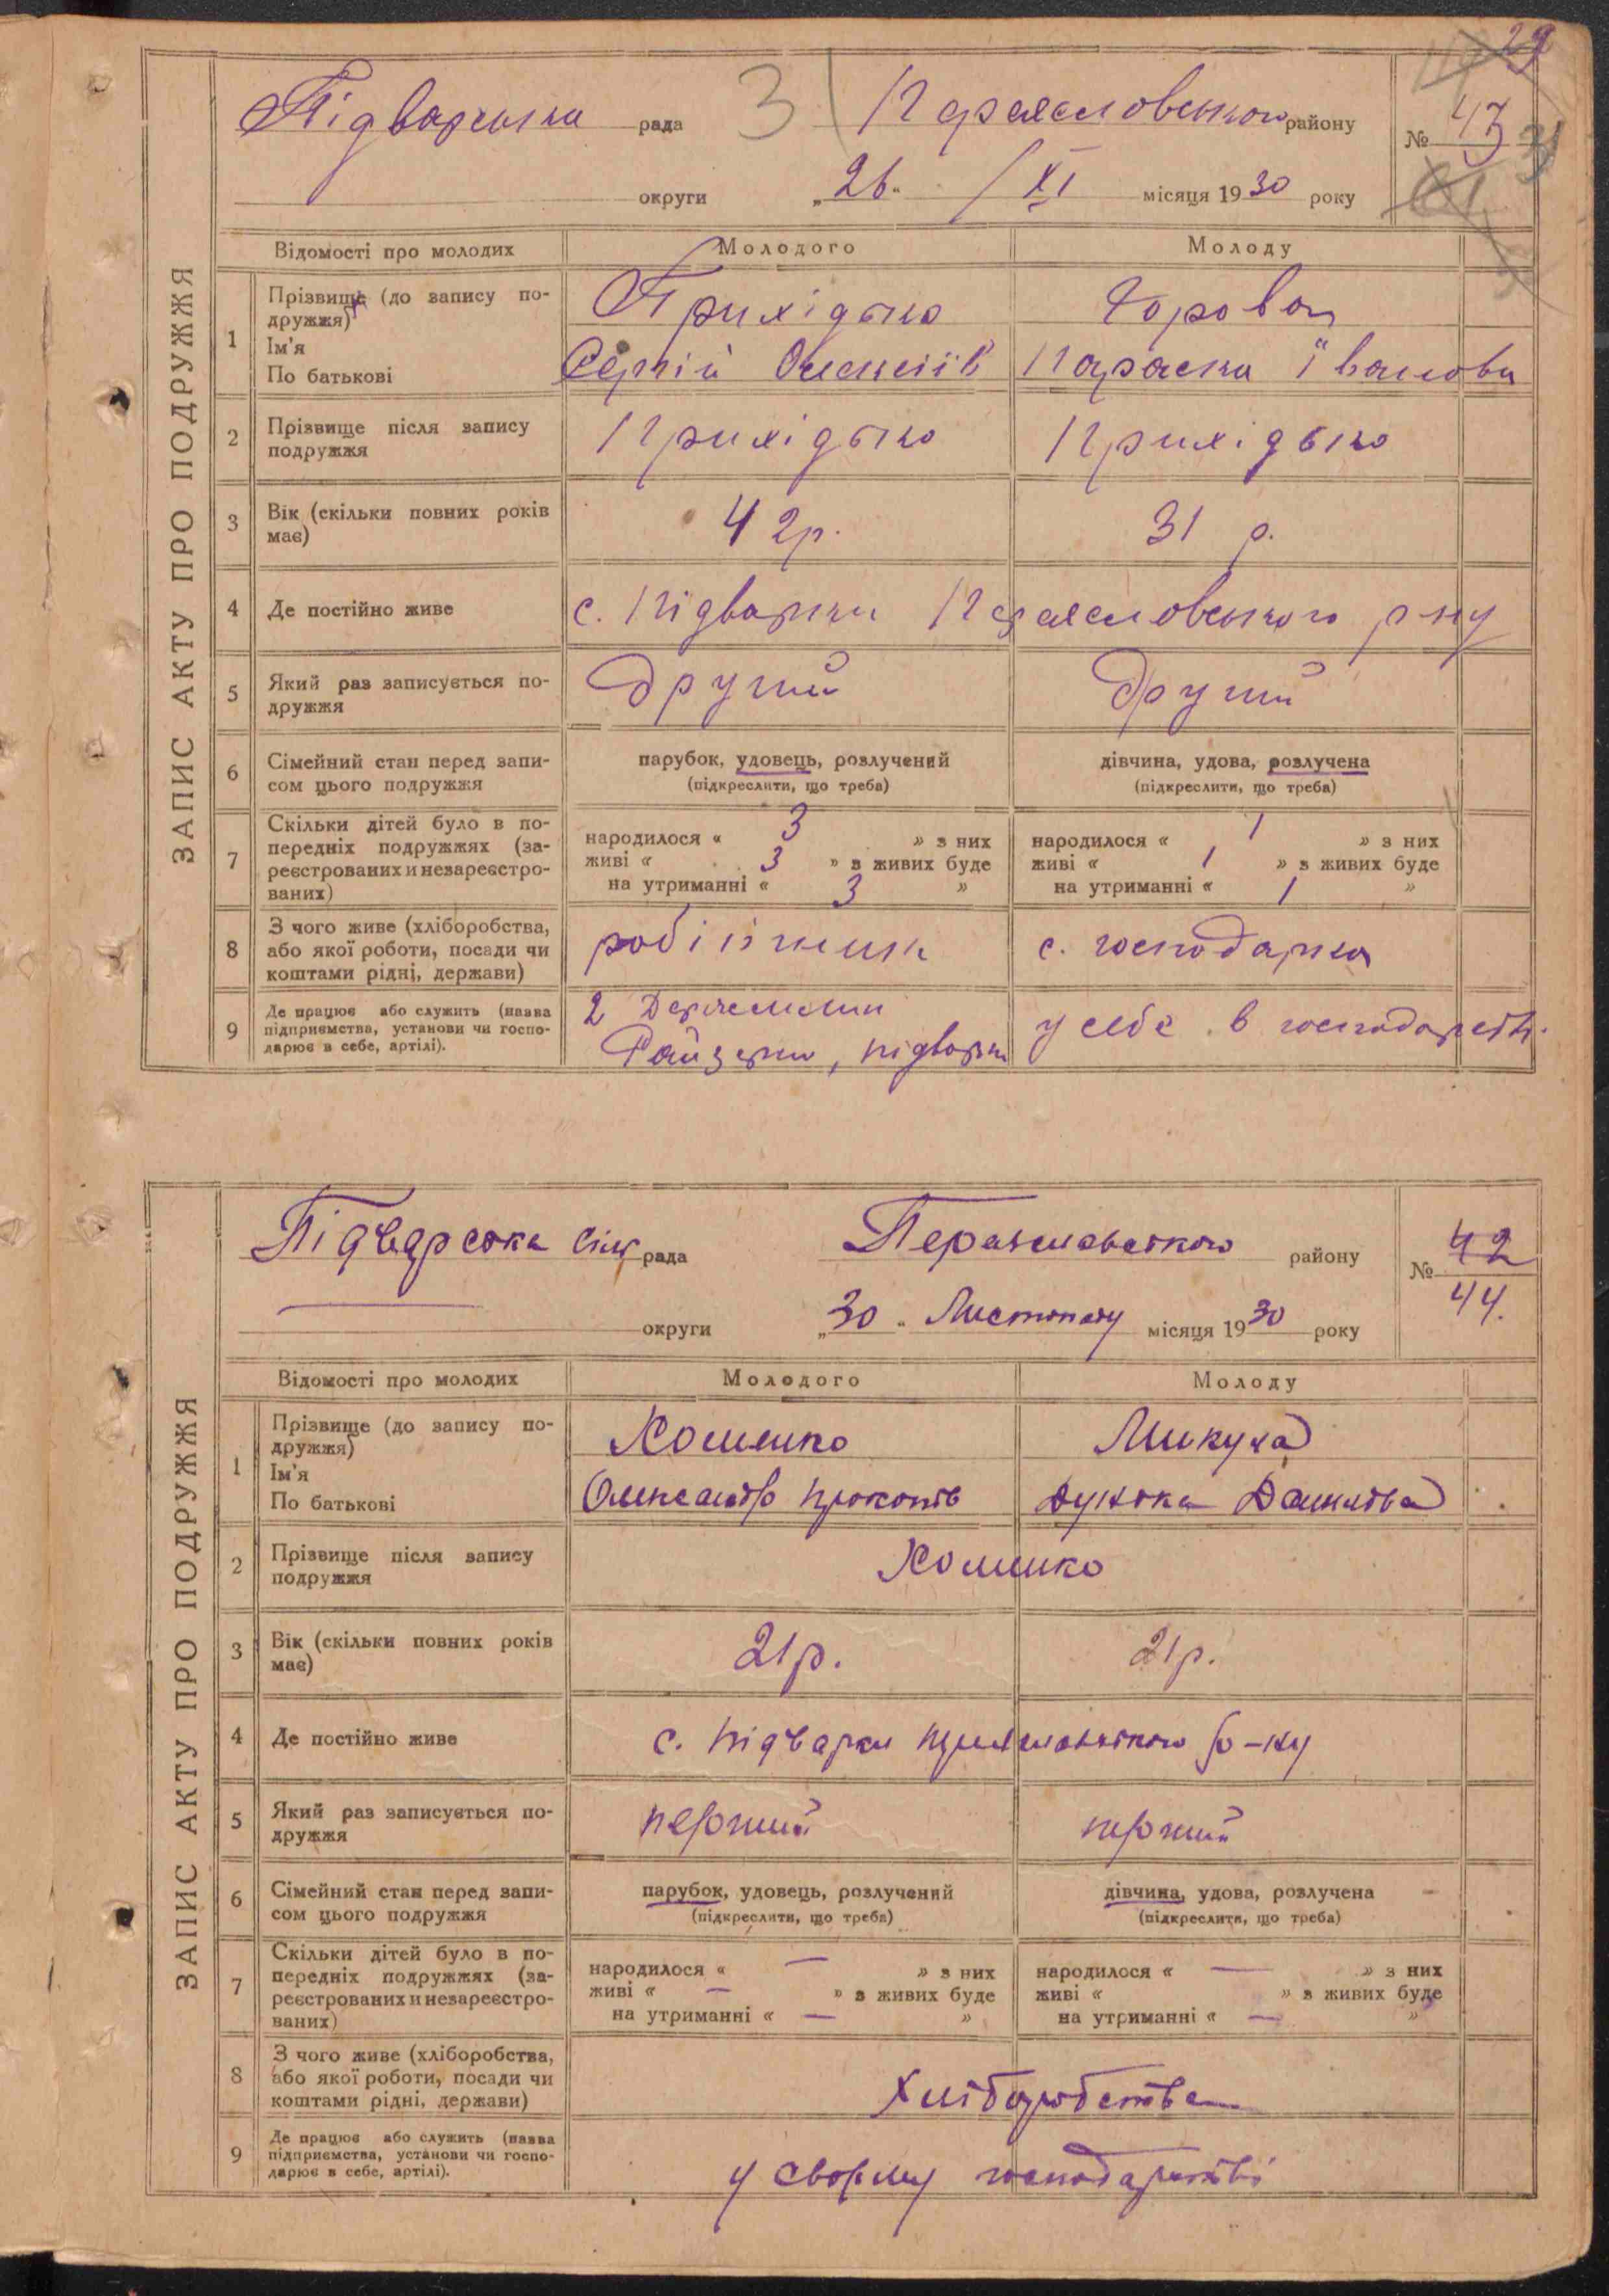 29
Підварська рада 31 Переясловського району № 43
округи „26“ / XI місяця 1930 року
ЗАПИС АКТУ ПРО ПОДРУЖЖЯ
Відомості про молодих Молодого Молоду
1 Прізвище (до запису подружжя) Прихідько
Ім'я
По батькові Сергій Олексіїв Параска Іванова
2 Прізвище після запису подружжя Прихідько Прихідько
3 Вік (скільки повних років має) 42р. 31 р.
4 Де постійно живе с. Підварки Переясловського р-ну
5 Який раз записується подружжя Другий Другий
6 Сімейний стан перед записом цього подружжя парубок, удовець, розлучений дівчина, удова, розлучена
(підкреслити, що треба) (підкреслити, що треба)
7 Скільки дітей було в попередніх подружжях (зареєстрованих и незареєстрованих) народилося « 3 » з них народилося « 1 » з них
живі « 3 » з живих буде живі « 1 » з живих буде
на утриманні « 3 » на утриманні « 1 »
8 З чого живе (хліборобства, або якої роботи, посади чи коштами рідні, держави) робітник с. господарка
9 Де працює або служить (назва підприємства, установи чи господарює в себе, артілі). 2 Держмлин підварки у себе в господарств.
Підварська сіль рада Переяславського району № 42
44.
округи „30“ Листопаду місяця 1930 року
ЗАПИС АКТУ ПРО ПОДРУЖЖЯ
Відомості про молодих Молодого Молоду
1 Прізвище (до запису подружжя) Хоменко Микула
Ім'я
По батькові Олександр Прокопів Дунька Данилова
2 Прізвище після запису подружжя Хоменко
3 Вік (скільки повних років має) 21р. 21р.
4 Де постійно живе с. Підварки р-ну
5 Який раз записується подружжя перший перший
6 Сімейний стан перед записом цього подружжя парубок, удовець, розлучений дівчина, удова, розлучена
(підкреслити, що треба) (підкреслити, що треба)
7 Скільки дітей було в попередніх подружжях (зареєстрованих и незареєстрованих) народилося « — » з них народилося « — » з них
живі « — » з живих буде живі « » з живих буде
на утриманні « — » на утриманні « — »
8 З чого живе (хліборобства, або якої роботи, посади чи коштами рідні, держави) Хліборобства
9 Де працює або служить (назва підприємства, установи чи господарює в себе, артілі). у своєму господарстві